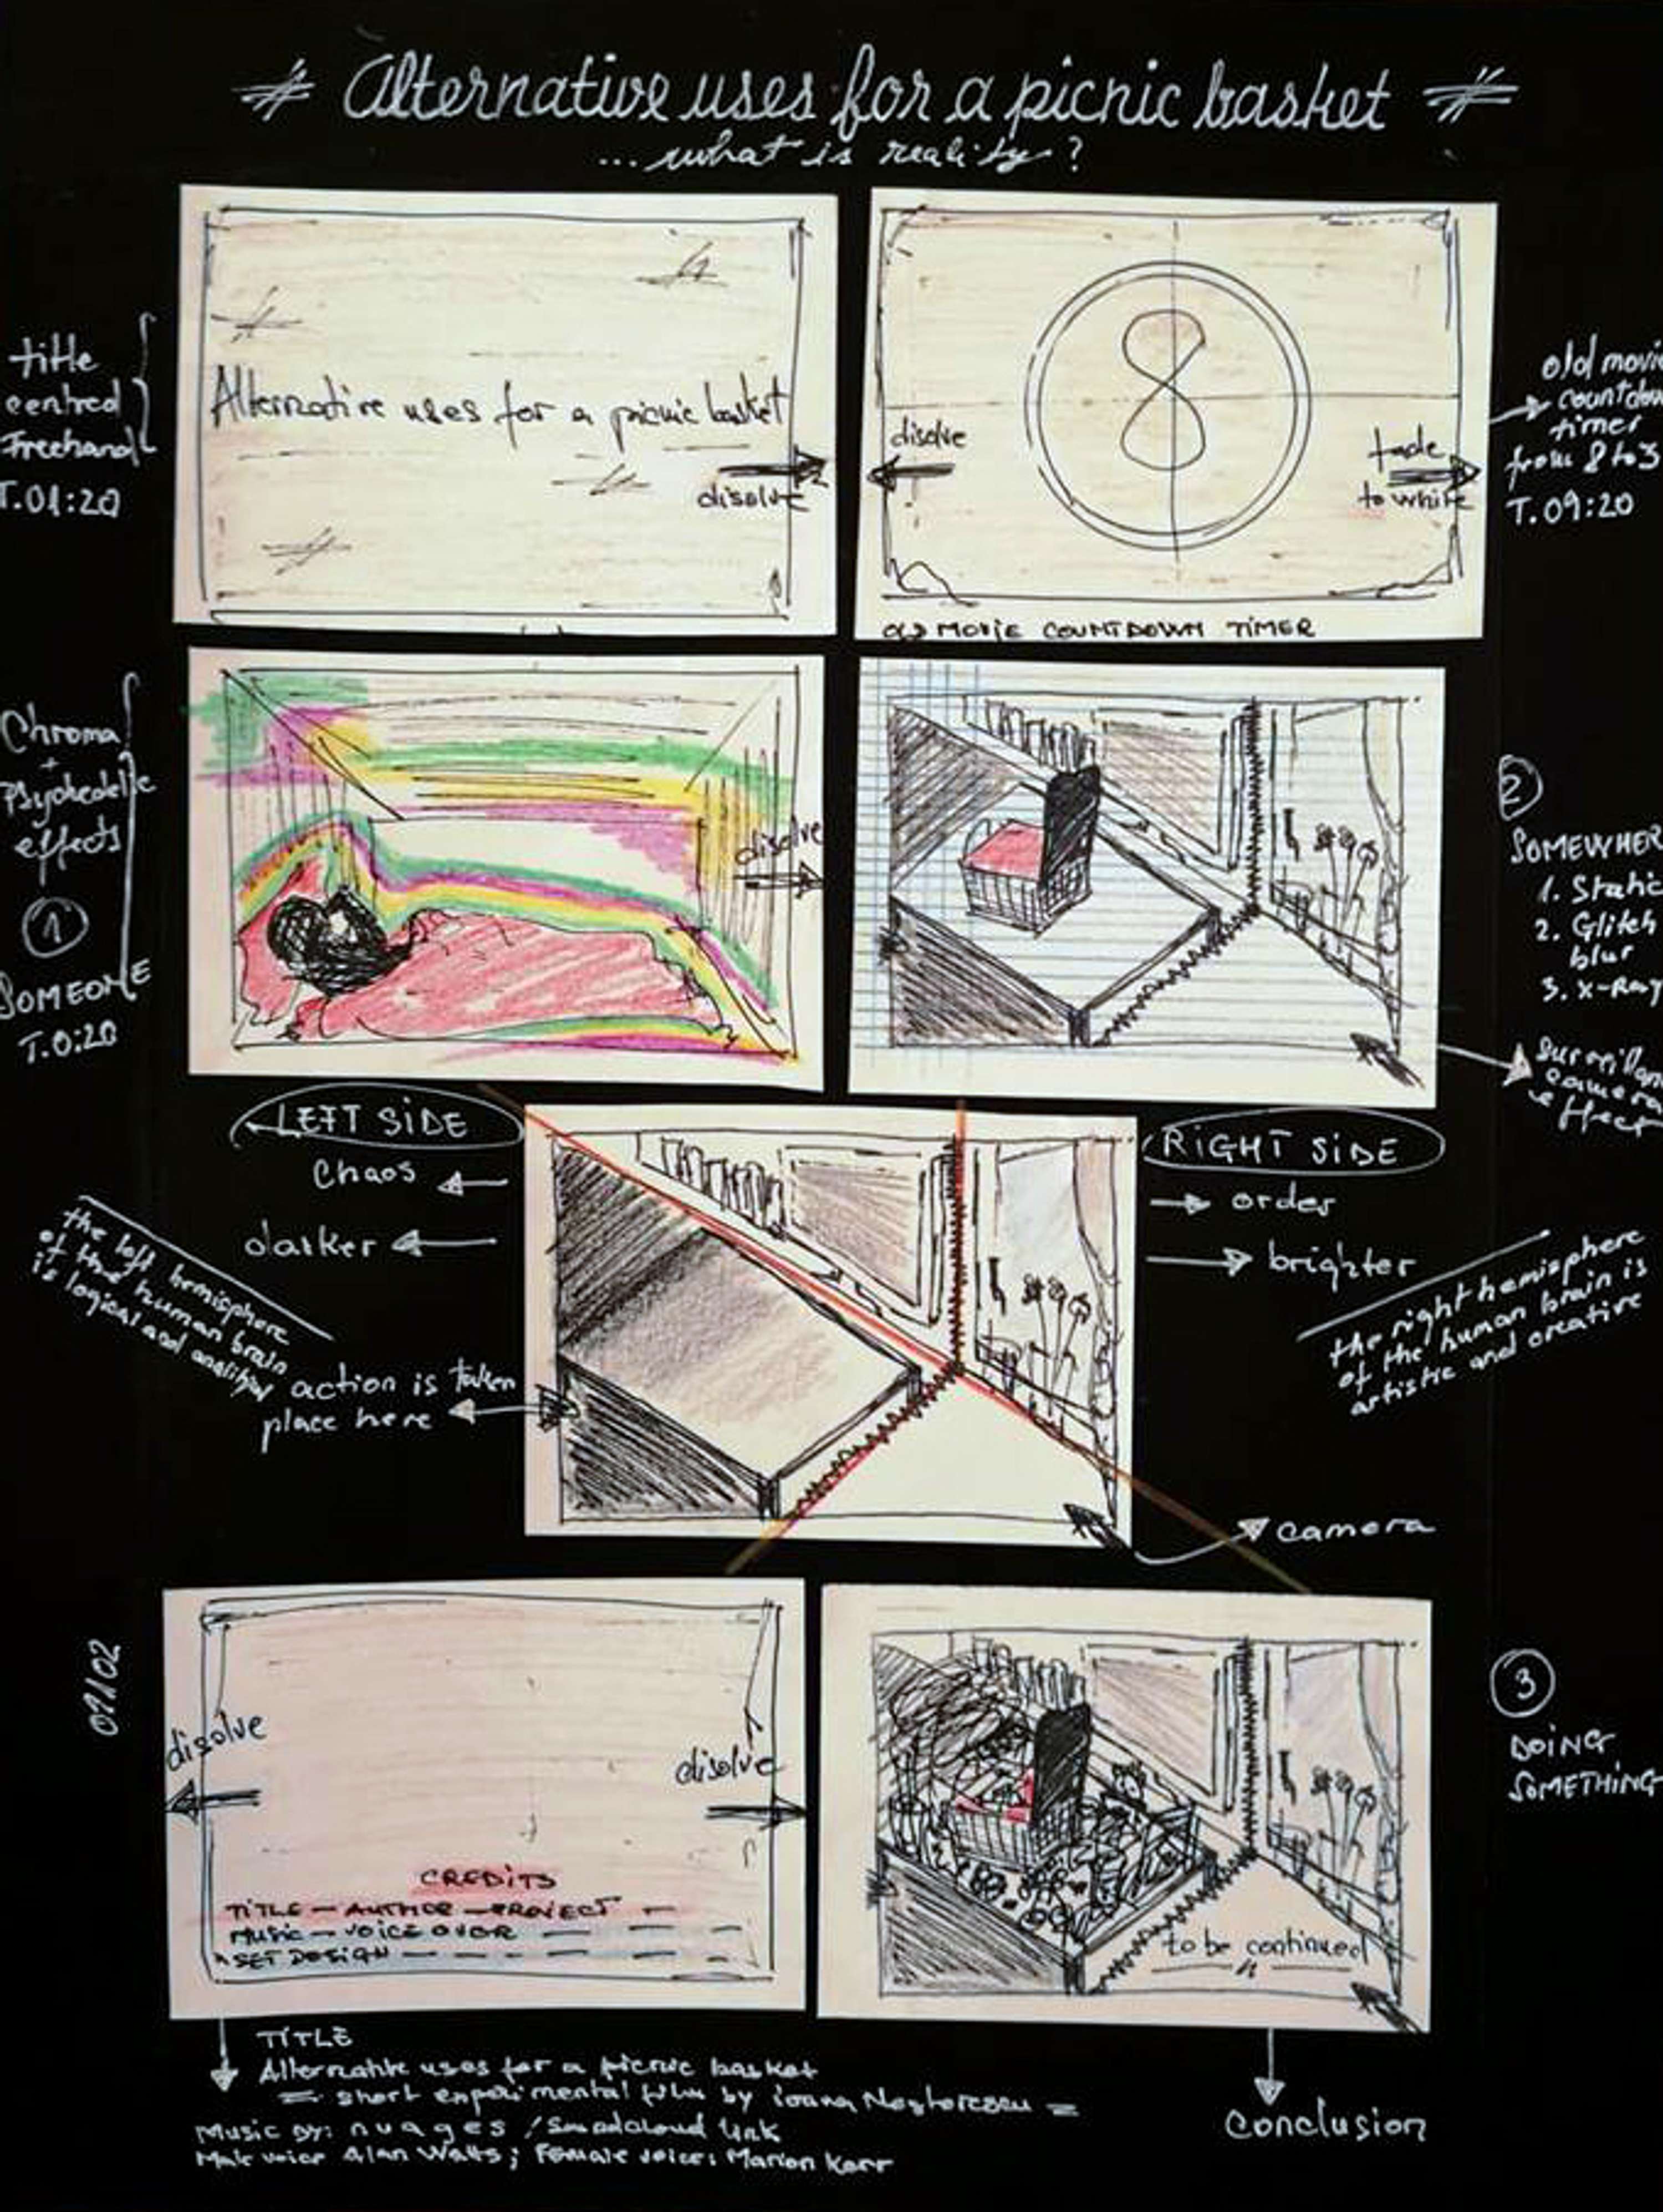 Alternative uses for a picnic basket
... what is reality?
title
centred
Freehand
T.01:20
Alternative uses for a picnic basket
disolve
disolve
8
fade
to white
old movie
countdown
timer
from 8 to 3
T.09:20
old MOViE COUNTDOWN TiMER
Chroma
+
Psychedelic
effects
1
SOMEONE
T.0:20
disolve
2
SOMEWHER
1. Static
2. Glitch
blur
3. X-Ray
camera
effect
LEFT SiDE
chaos
darker
the left hemisphere
of the human brain
is logical and
action is taken
place here
RiGHT SiDE
order
brighter
the right hemisphere
of the human brain is
artistic and creative
camera
01/02
disolve
disolve
CREDiTS
TiTLE — AUTHOR — PROJECT —
MUSiC — VOiCE OVER —
SET DESiGN — — — — —
3
DOiNG
SOMETHiNG
to be continued
TiTLE
Alternative uses for a picnic basket
= short experimental film by ioana =
Music by: nuages / Soundcloud link
Male voice Alan Watts; Female voice: Marion Kerr
Conclusion